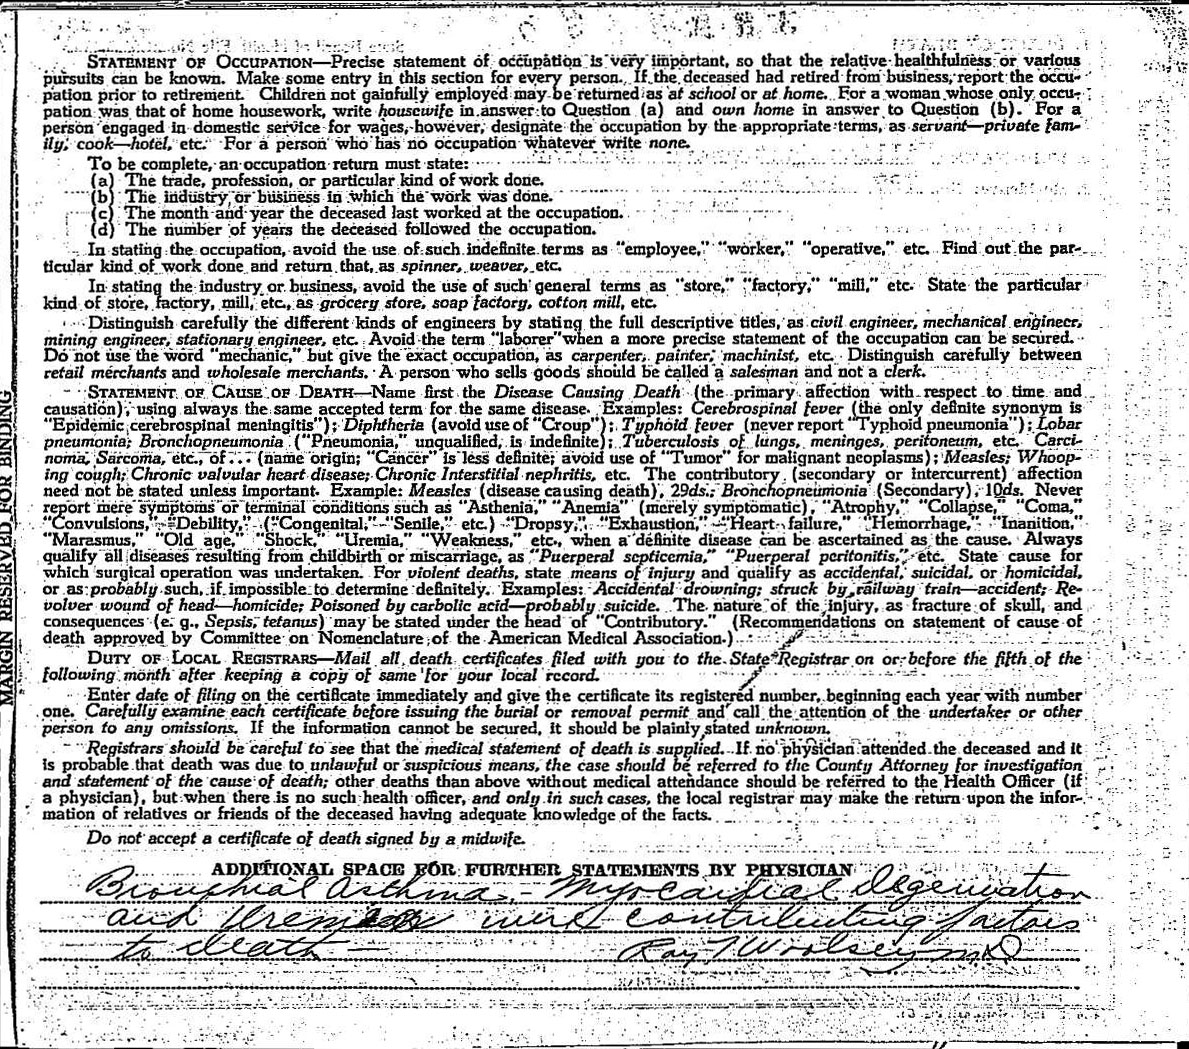 STATEMENT OF OCCUPATION—Precise statement of occupation is very important, so that the relative healthfulness or various
pursuits can be known. Make some entry in this section for every person. If the deceased had retired from business, report the occu-
pation prior to retirement. Children not gainfully employed may be returned as at school or at home. For a woman whose only occu-
pation was that of home housework, write housewife in answer to Question (a) and own home in answer to Question (b). For a
person engaged in domestic service for wages, however, designate the occupation by the appropriate terms, as servant—private fam-
ily, cook—hotel, etc. For a person who has no occupation whatever write none.
To be complete, an occupation return must state:
(a) The trade, profession, or particular kind of work done.
(b) The industry or business in which the work was done.
(c) The month and year the deceased last worked at the occupation.
(d) The number of years the deceased followed the occupation.
In stating the occupation, avoid the use of such indefinite terms as "employee," "worker," "operative," etc. Find out the par-
ticular kind of work done and return that, as spinner, weaver, etc.
In stating the industry or business, avoid the use of such general terms as "store," "factory," "mill," etc. State the particular
kind of store, factory, mill, etc., as grocery store, soap factory, cotton mill, etc.
Distinguish carefully the different kinds of engineers by stating the full descriptive titles, as civil engineer, mechanical engineer,
mining engineer, stationary engineer, etc. Avoid the term "laborer" when a more precise statement of the occupation can be secured.
Do not use the word "mechanic," but give the exact occupation, as carpenter, painter, machinist, etc. Distinguish carefully between
retail merchants and wholesale merchants. A person who sells goods should be called a salesman and not a clerk.
STATEMENT OF CAUSE OF DEATH—Name first the Disease Causing Death (the primary affection with respect to time and
causation), using always the same accepted term for the same disease. Examples: Cerebrospinal fever (the only definite synonym is
"Epidemic cerebrospinal meningitis"); Diphtheria (avoid use of "Croup"); Typhoid fever (never report "Typhoid pneumonia"); Lobar
pneumonia; Bronchopneumonia ("Pneumonia," unqualified, is indefinite); Tuberculosis of lungs, meninges, peritoneum, etc. Carci-
noma, Sarcoma, etc., of... (name origin; "Cancer" is less definite; avoid use of "Tumor" for malignant neoplasms); Measles; Whoop-
ing cough; Chronic valvular heart disease; Chronic Interstitial nephritis, etc. The contributory (secondary or intercurrent) affection
need not be stated unless important. Example: Measles (disease causing death), 29ds.; Bronchopneumonia (Secondary), 10ds. Never
report mere symptoms or terminal conditions such as "Asthenia," "Anemia" (merely symptomatic), "Atrophy," "Collapse," "Coma,"
"Convulsions," "Debility," ("Congenital," "Senile," etc.) "Dropsy," "Exhaustion," "Heart failure," "Hemorrhage," "Inanition,"
"Marasmus," "Old age," "Shock," "Uremia," "Weakness," etc., when a definite disease can be ascertained as the cause. Always
qualify all diseases resulting from childbirth or miscarriage, as "Puerperal septicemia," "Puerperal peritonitis," etc. State cause for
which surgical operation was undertaken. For violent deaths, state means of injury and qualify as accidental, suicidal, or homicidal,
or as probably such, if impossible to determine definitely. Examples: Accidental drowning; struck by railway train—accident; Re-
volver wound of head—homicide; Poisoned by carbolic acid—probably suicide. The nature of the injury, as fracture of skull, and
consequences (e. g., Sepsis, tetanus) may be stated under the head of "Contributory." (Recommendations on statement of cause of
death approved by Committee on Nomenclature of the American Medical Association.)
DUTY OF LOCAL REGISTRARS—Mail all death certificates filed with you to the State Registrar on or before the fifth of the
following month after keeping a copy of same for your local record.
Enter date of filing on the certificate immediately and give the certificate its registered number, beginning each year with number
one. Carefully examine each certificate before issuing the burial or removal permit and call the attention of the undertaker or other
person to any omissions. If the information cannot be secured, it should be plainly stated unknown.
Registrars should be careful to see that the medical statement of death is supplied. If no physician attended the deceased and it
is probable that death was due to unlawful or suspicious means, the case should be referred to the County Attorney for investigation
and statement of the cause of death; other deaths than above without medical attendance should be referred to the Health Officer (if
a physician), but when there is no such health officer, and only in such cases, the local registrar may make the return upon the infor-
mation of relatives or friends of the deceased having adequate knowledge of the facts.
Do not accept a certificate of death signed by a midwife.
ADDITIONAL SPACE FOR FURTHER STATEMENTS BY PHYSICIAN
Bronchial Asthma - Myocardial Degeneration
and Uremia were contributing factors
to death — Ray T Woolsey MD
MARGIN RESERVED FOR BINDING